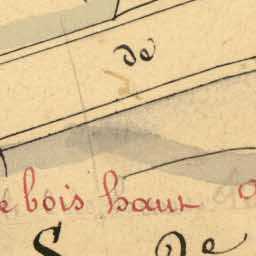 de
bois haut
S De